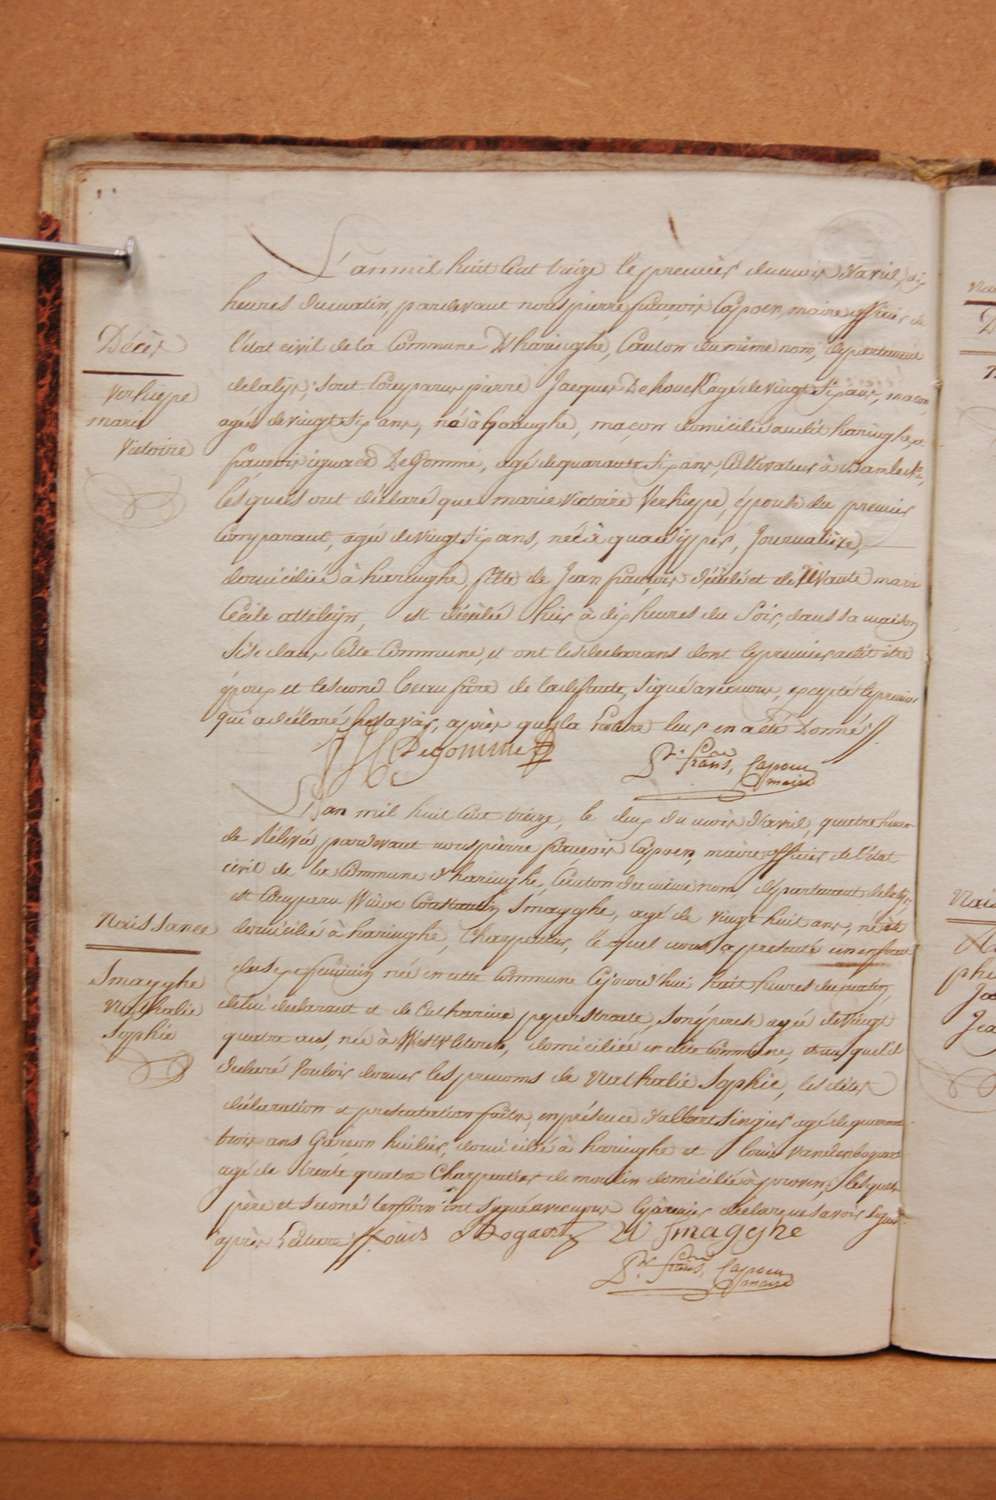 L'an mil huit Cent treize le premier du mois d'avril, dix
heures du matin, pardevant nous pierre françois Capoen, maire officier de
Décès
l'état civil de la Commune D'haringhe, Canton du même nom, département
Verhieppe
marie
Victoire
delalys; sont Comparus pierre Jacques Dehouck agé de vingt Six ans, maçon
agé de vingt Six ans, né à haringhe, maçon domicilié audit haringhe, et
françois ignace DeGommé, agé de quarante Six ans, Cultivateur à
lesquels ont déclaré que marie Victoire Verhieppe, epouse du premier
Comparant, agée de vingt Six ans, née à quaedypres, Journalière,
domiciliée à haringhe, fille de Jean françois, décédé et de vivante marie
Cécile atteleyn, est décédée hier à dix heures du Soir, dans sa maison
Sise dans Cette Commune, et ont les declarans dont le premier a dit être
époux et le second beau frère de la defunte, Signé avec nous, excepté le premier
qui a déclaré ne savoir, après que la lecture leur en a été Donnée //.
Degomme
Pre. frans. Capoen
maire
L'an mil huit Cent treize, le deux du mois d'avril, quatre heures
de Relevée pardevant nous pierre françois Capoen, maire officier de l'état
civil de la Commune d'haringhe, Canton du même nom département delalys,
Naissance
est Comparu Constantin Smagghe, agé de vingt huit ans, né et
domicilié à haringhe, Charpentier, lequel nous a presenté un enfant
Smagghe
Nathalie
Sophie
du sexe féminin née en cette Commune Cejourd'hui huit heures du matin,
de lui declarant et de Catharine peperstraete, Son épouse agée de vingt
quatre ans, née à Westvleteren, domiciliée en dite Commune, et auquel il
déclaré vouloir donner les prenoms de Nathalie Sophie, les dites
déclaration et presentation faites en présence d'albert Singier agé de quarante
trois ans Garçon huilier, domicilié à haringhe et louis Vandenbogaert
agé de trente quatre Charpentier de moulin domicilié à proven, et les quels
père et second temoin ont Signé avec nous le premier déclarque savoir signer
après Lecture // Louis Bogaert W Smagghe
Pre. frans. Capoen
maire